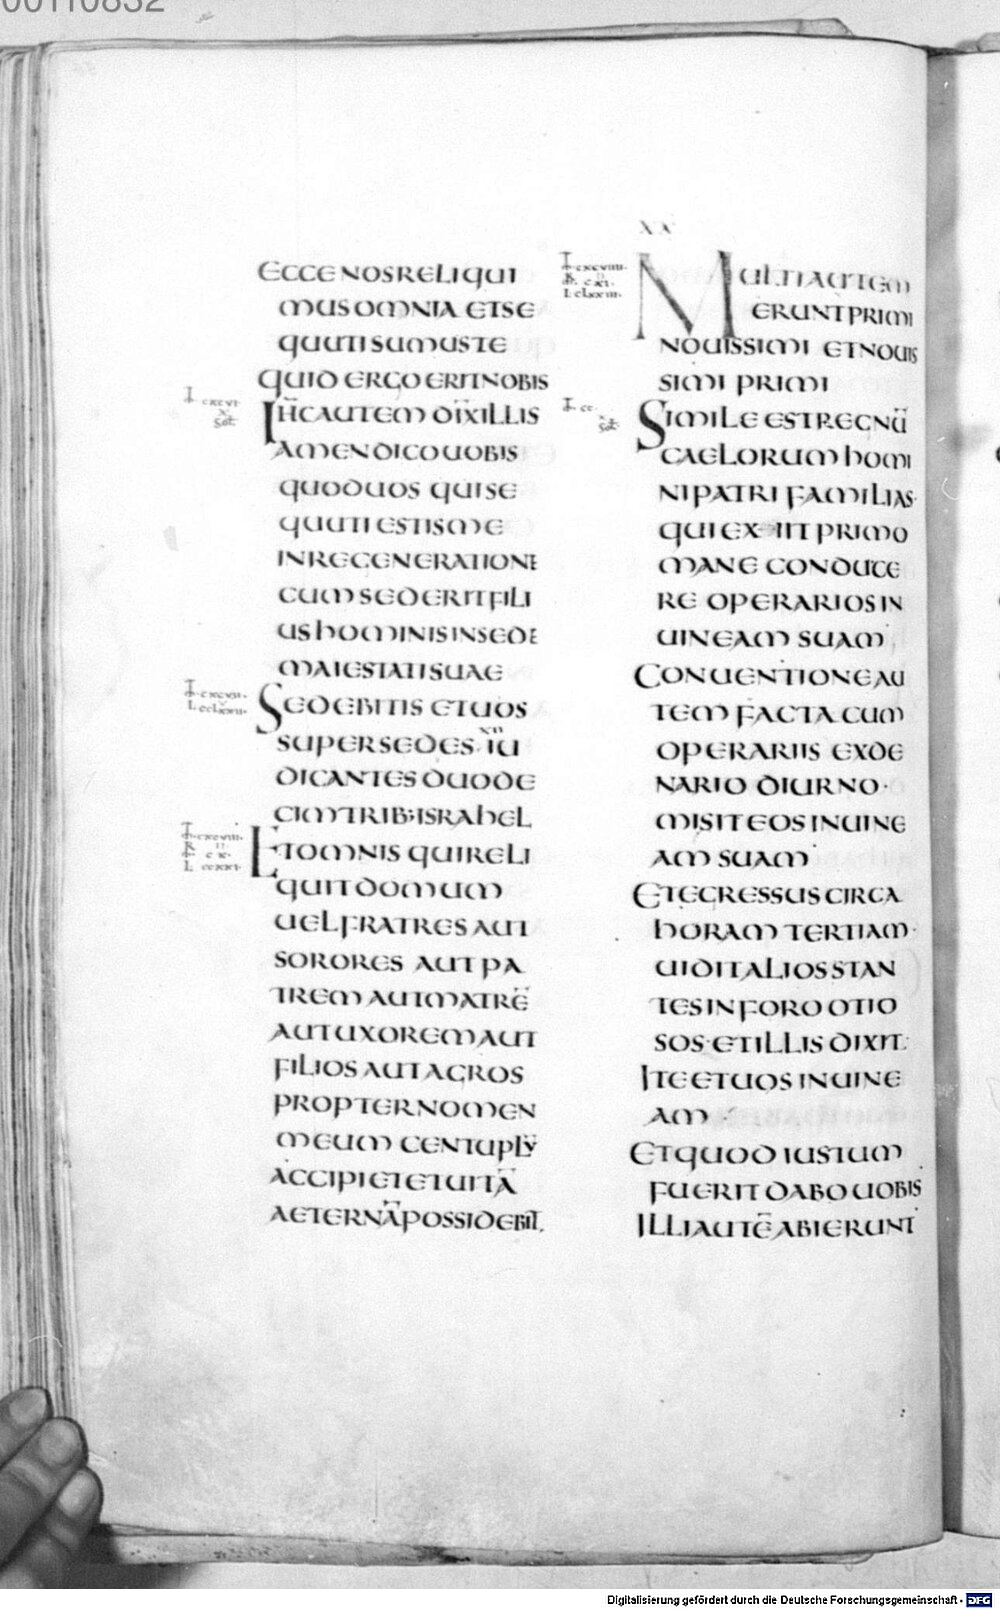 00110832
ECCE NOS RELIQUI
MUS OMNIA ET SE
QUUTI SUMUS TE
QUID ERGO ERIT NOBIS
IH̅C AUTEM DIXIT ILLIS
AMEN DICO UOBIS
QUOD UOS QUI SE
QUUTI ESTIS ME
IN REGENERATIONE
CUM SEDERIT FILI
US HOMINIS IN SEDE
MAIESTATIS SUAE
SEDEBITIS ET UOS
XII
SUPER SEDES IU
DICANTES DUODE
CIM TRIB· ISRAHEL
ET OMNIS QUI RELI
QUIT DOMUM
UEL FRATRES AUT
SORORES AUT PA
TREM AUT MATRE̅
AUT UXOREM AUT
FILIOS AUT AGROS
PROPTER NOMEN
MEUM CENTUPLU̅
ACCIPIET ET UITA̅
AETERNA̅ POSSIDEBIT.
XX
MULTI AUTEM
ERUNT PRIMI
NOUISSIMI ET NOUIS
SIMI PRIMI
SIMILE EST REGNU̅
CAELORUM HOMI
NI PATRI FAMILIAS·
QUI EXIIT PRIMO
MANE CONDUCE
RE OPERARIOS IN
UINEAM SUAM
CONUENTIONE AU
TEM FACTA CUM
OPERARIIS EX DE
NARIO DIURNO·
MISIT EOS IN UINE
AM SUAM
ET EGRESSUS CIRCA
HORAM TERTIAM·
UIDIT ALIOS STAN
TES IN FORO OTIO
SOS· ET ILLIS DIXIT·
ITE ET UOS IN UINE
AM
ET QUOD IUSTUM
FUERIT DABO UOBIS
ILLI AUTE̅ ABIERUNT
Digitalisierung gefördert durch die Deutsche Forschungsgemeinschaft - DFG